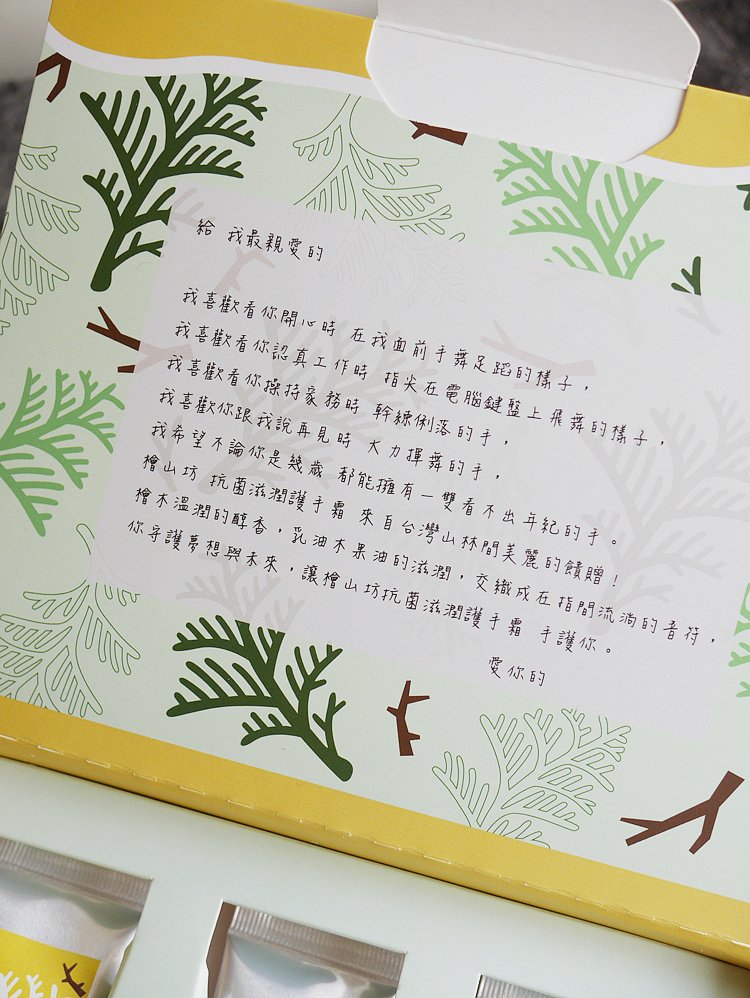 給 我最親愛的
我喜歡看你開心時 在我面前手舞足蹈的樣子，
我喜歡看你認真工作時 指尖在電腦鍵盤上飛舞的樣子，
我喜歡看你操持家務時 幹練俐落的手，
我喜歡你跟我說再見時 大力揮舞的手，
我希望不論你是幾歲 都能擁有一雙看不出年紀的手。
檜山坊 抗菌滋潤護手霜 來自台灣山林間美麗的饋贈！
檜木溫潤的醇香，乳油木果油的滋潤，交織成在指間流淌的音符，
你守護夢想與未來，讓檜山坊抗菌滋潤護手霜 手護你。
愛你的